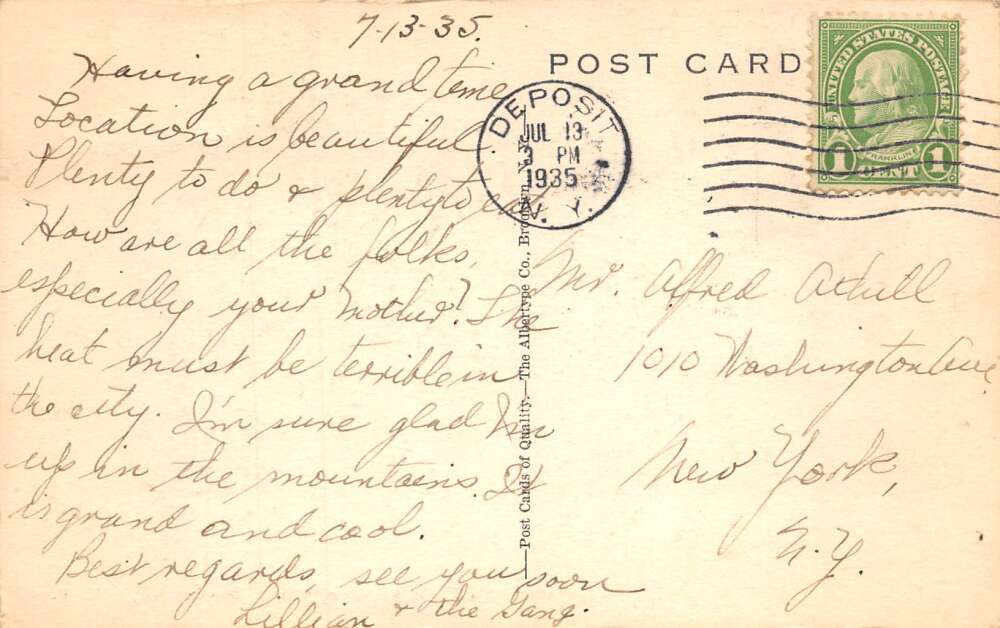 7-13-35.
Having a grand time
Location is beautiful
Plenty to do & plenty to eat
How are all the folks,
especially your mother? The
heat must be terrible in
the city. I'm sure glad I'm
up in the mountains. It
is grand and cool.
Best regards, see you soon
Lillian & the Gang.
POST CARD
DEPOSIT
JUL 13
3 PM
1935
N.Y.
UNITED STATES POSTAGE
FRANKLIN
1 CENT 1
—Post Cards of Quality.—The Albertype Co., Brooklyn, N.Y.
Mr. Alfred
1010 Washington Ave
New York,
N.Y.